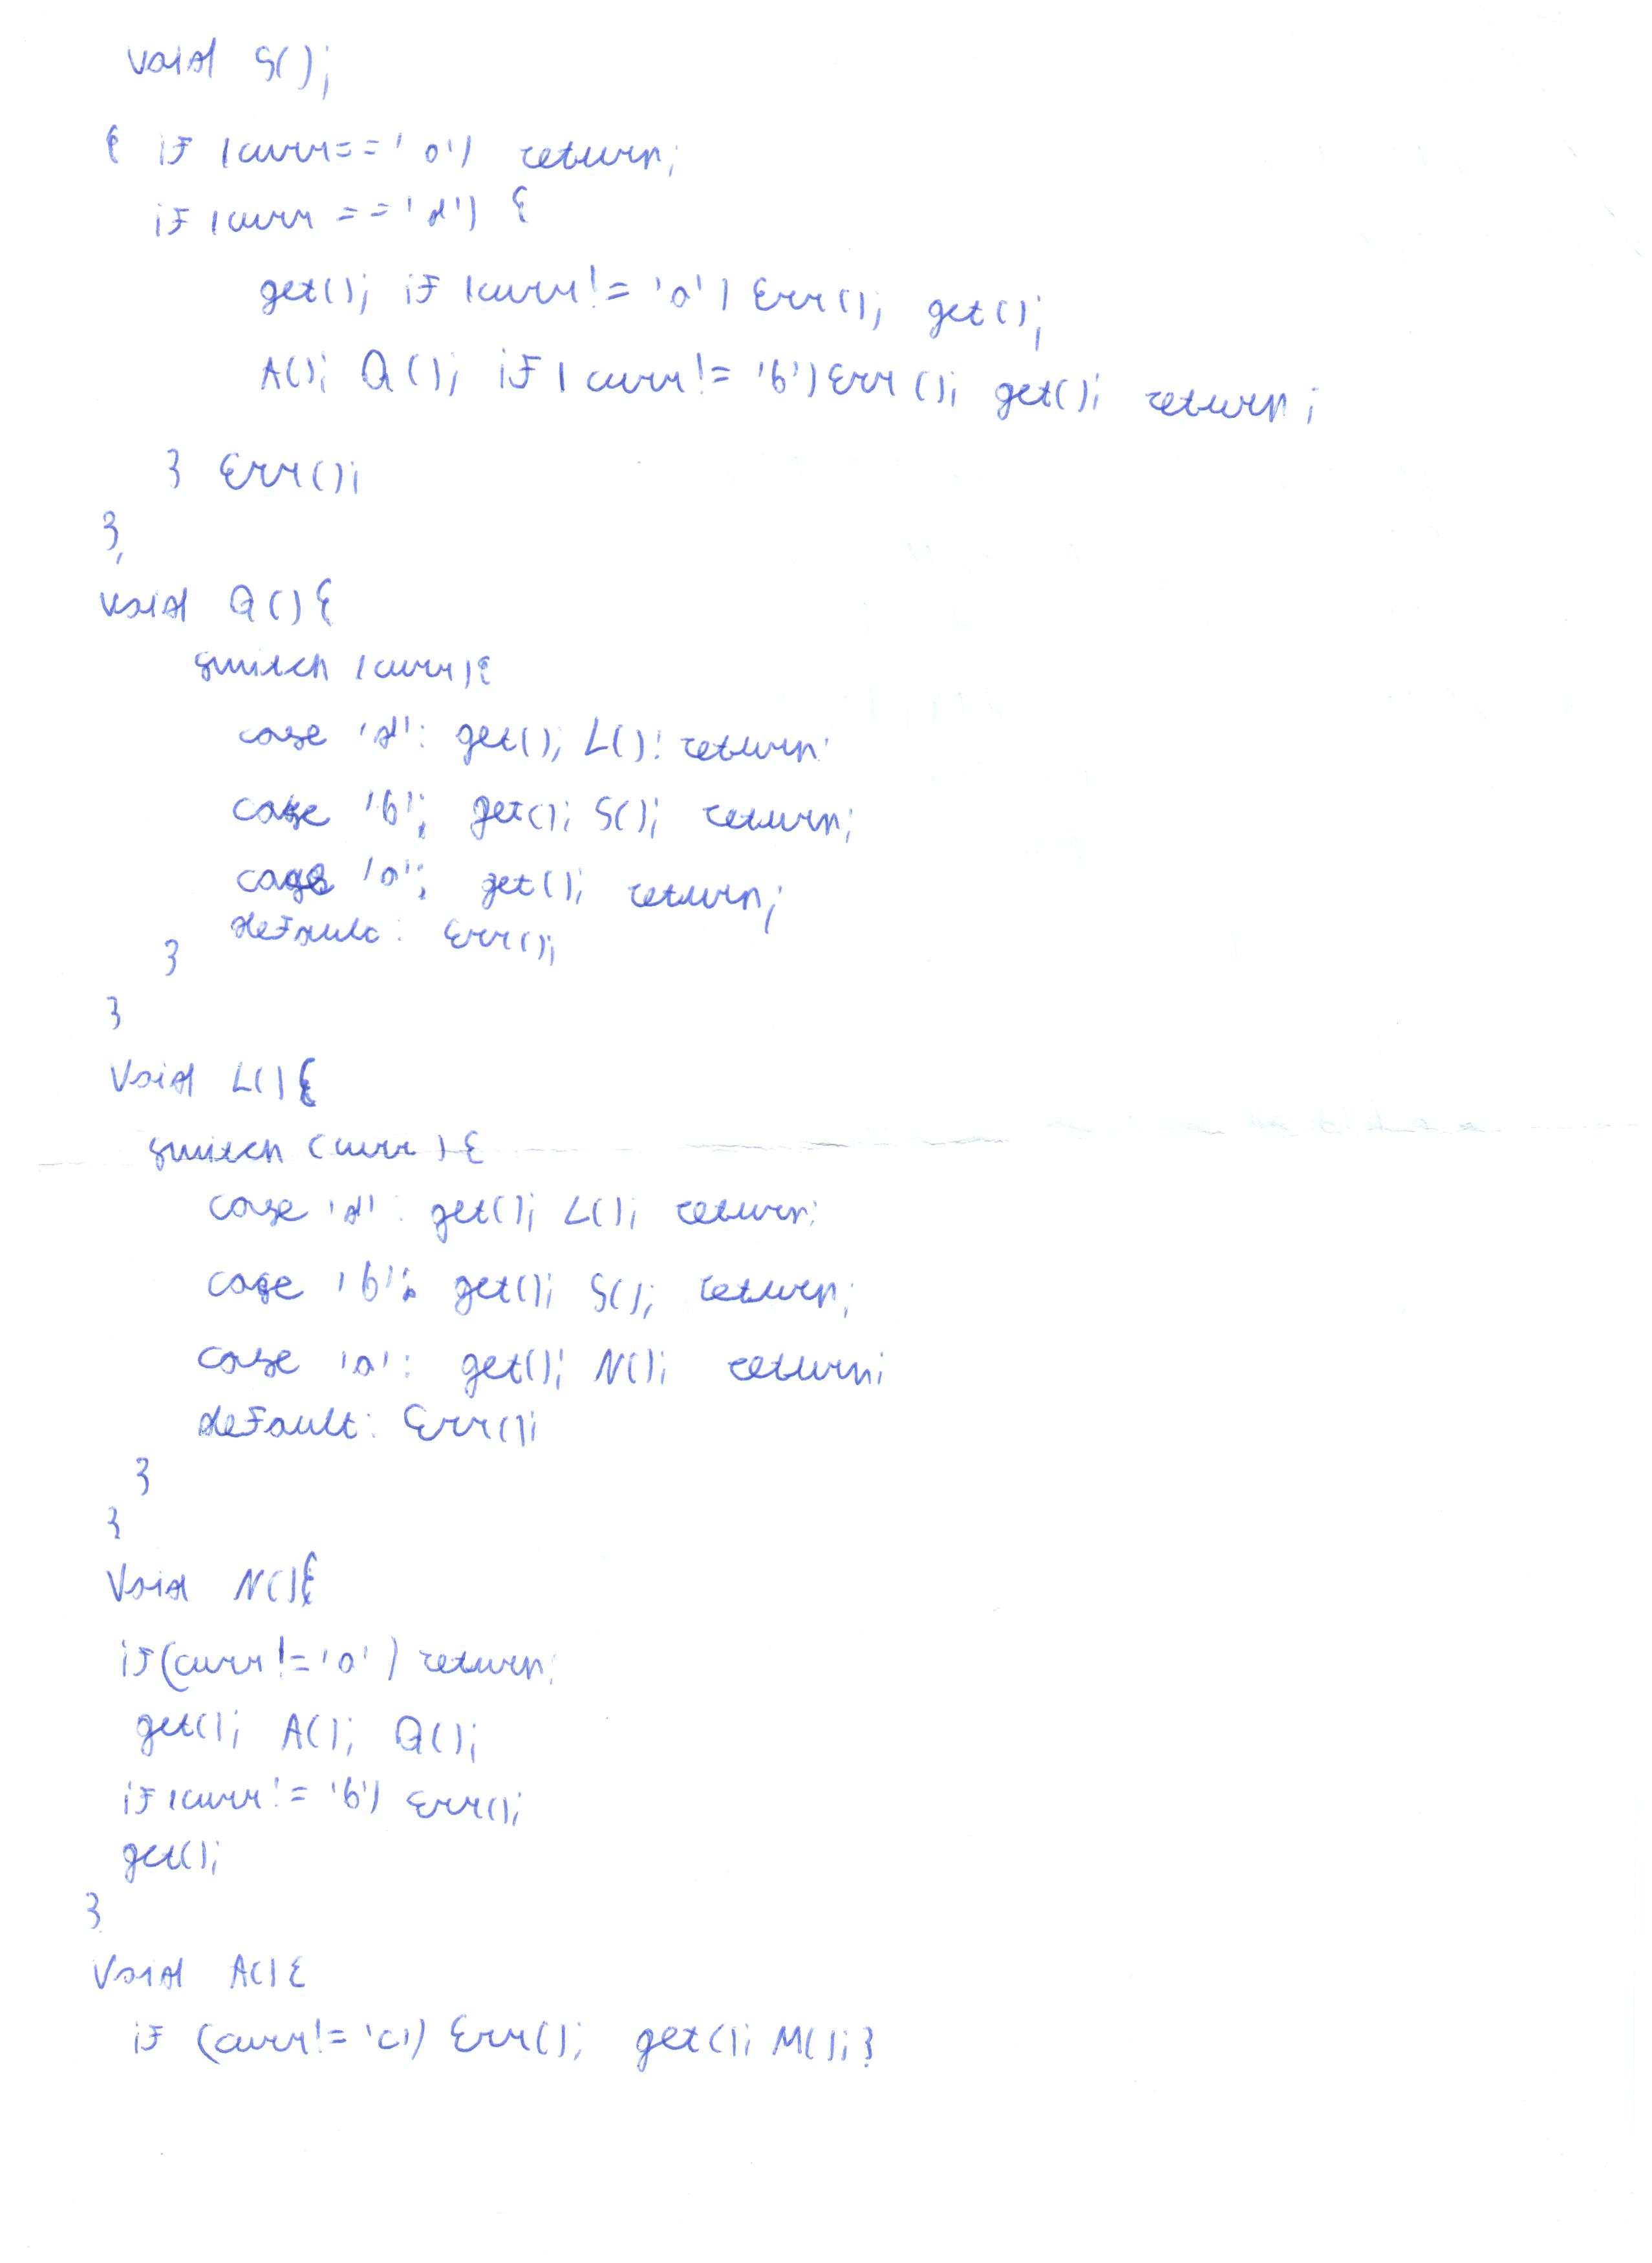 void S();
{ if (curr=='a') return;
if (curr=='d') {
get(); if (curr!='a') Err(); get();
A(); Q(); if (curr!='b') Err(); get(); return;
} Err();
}
void Q(){
switch (curr){
case 'd': get(); L(); return;
case 'b'; get(); S(); return;
case 'a'; get(); return;
default: Err();
}
}
Void L(){
switch (curr){
case 'd': get(); L(); return;
case 'b': get(); S(); return;
case 'a': get(); N(); return;
default: Err();
}
}
Void N(){
if(curr!='a') return;
get(); A(); Q();
if (curr!='b') Err();
get();
}
Void A(){
if (curr!='c') Err(); get(); M();}